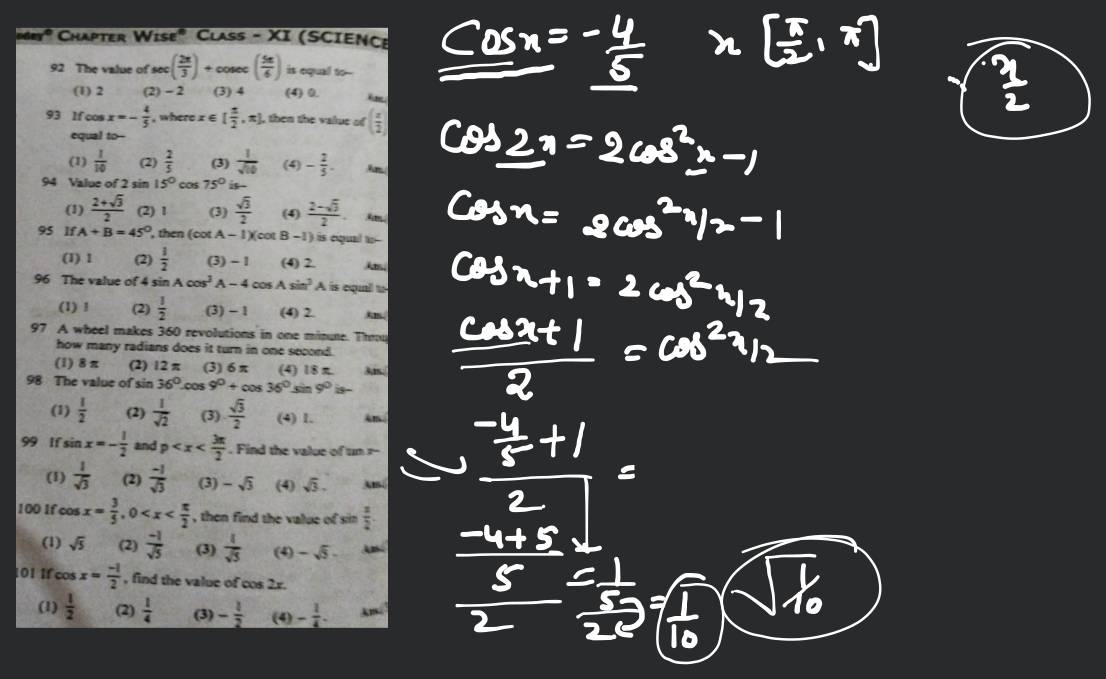 CHAPTER WISE® CLASS - XI (SCIENCE
92 The value of sec (2π/3) + cosec (5π/6) is equal to–
(1) 2 (2) – 2 (3) 4 (4) 0.
93 If cos x = – 4/5, where x ∈ [π/2, π], then the value of (x/2)
equal to–
(1) 1/10 (2) 2/5 (3) 1/√10 (4) – 2/5.
94 Value of 2 sin 15⁰ cos 75⁰ is–
(1) 2+√3/2 (2) 1 (3) √3/2 (4) 2–√3/2.
95 If A + B = 45⁰, then (cot A – 1)(cot B –1) is equal to–
(1) 1 (2) 1/2 (3) – 1 (4) 2.
96 The value of 4 sin A cos³ A – 4 cos A sin³ A is equal to
(1) 1 (2) 1/2 (3) – 1 (4) 2.
97 A wheel makes 360 revolutions in one minute. Throu
how many radians does it turn in one second.
(1) 8 π (2) 12 π (3) 6 π (4) 18 π.
98 The value of sin 36⁰ cos 9⁰ + cos 36⁰ sin 9⁰ is–
(1) 1/2 (2) 1/√2 (3) √3/2 (4) 1.
99 If sin x = – 1/2 and p < x < 3π/2. Find the value of tan x–
(1) 1/√3 (2) –1/√3 (3) – √3 (4) √3.
100 If cos x = 3/5, 0 < x < π/2, then find the value of sin x/2.
(1) √5 (2) –1/√5 (3) 1/√5 (4) – √5.
101 If cos x = –1/2, find the value of cos 2x.
(1) 1/2 (2) 1/4 (3) – 1/2 (4) – 1/4.
Cosx = -4/5 x [π/2, π]
x/2
Cos2x = 2cos²x - 1
Cosx = 2cos²x/2 - 1
Cosx+1 = 2cos²x/2
cosx+1/2 = cos²x/2
-4/5 + 1/2 =
-4+5/5/2 = 1/5/2 = 1/10 √1/10